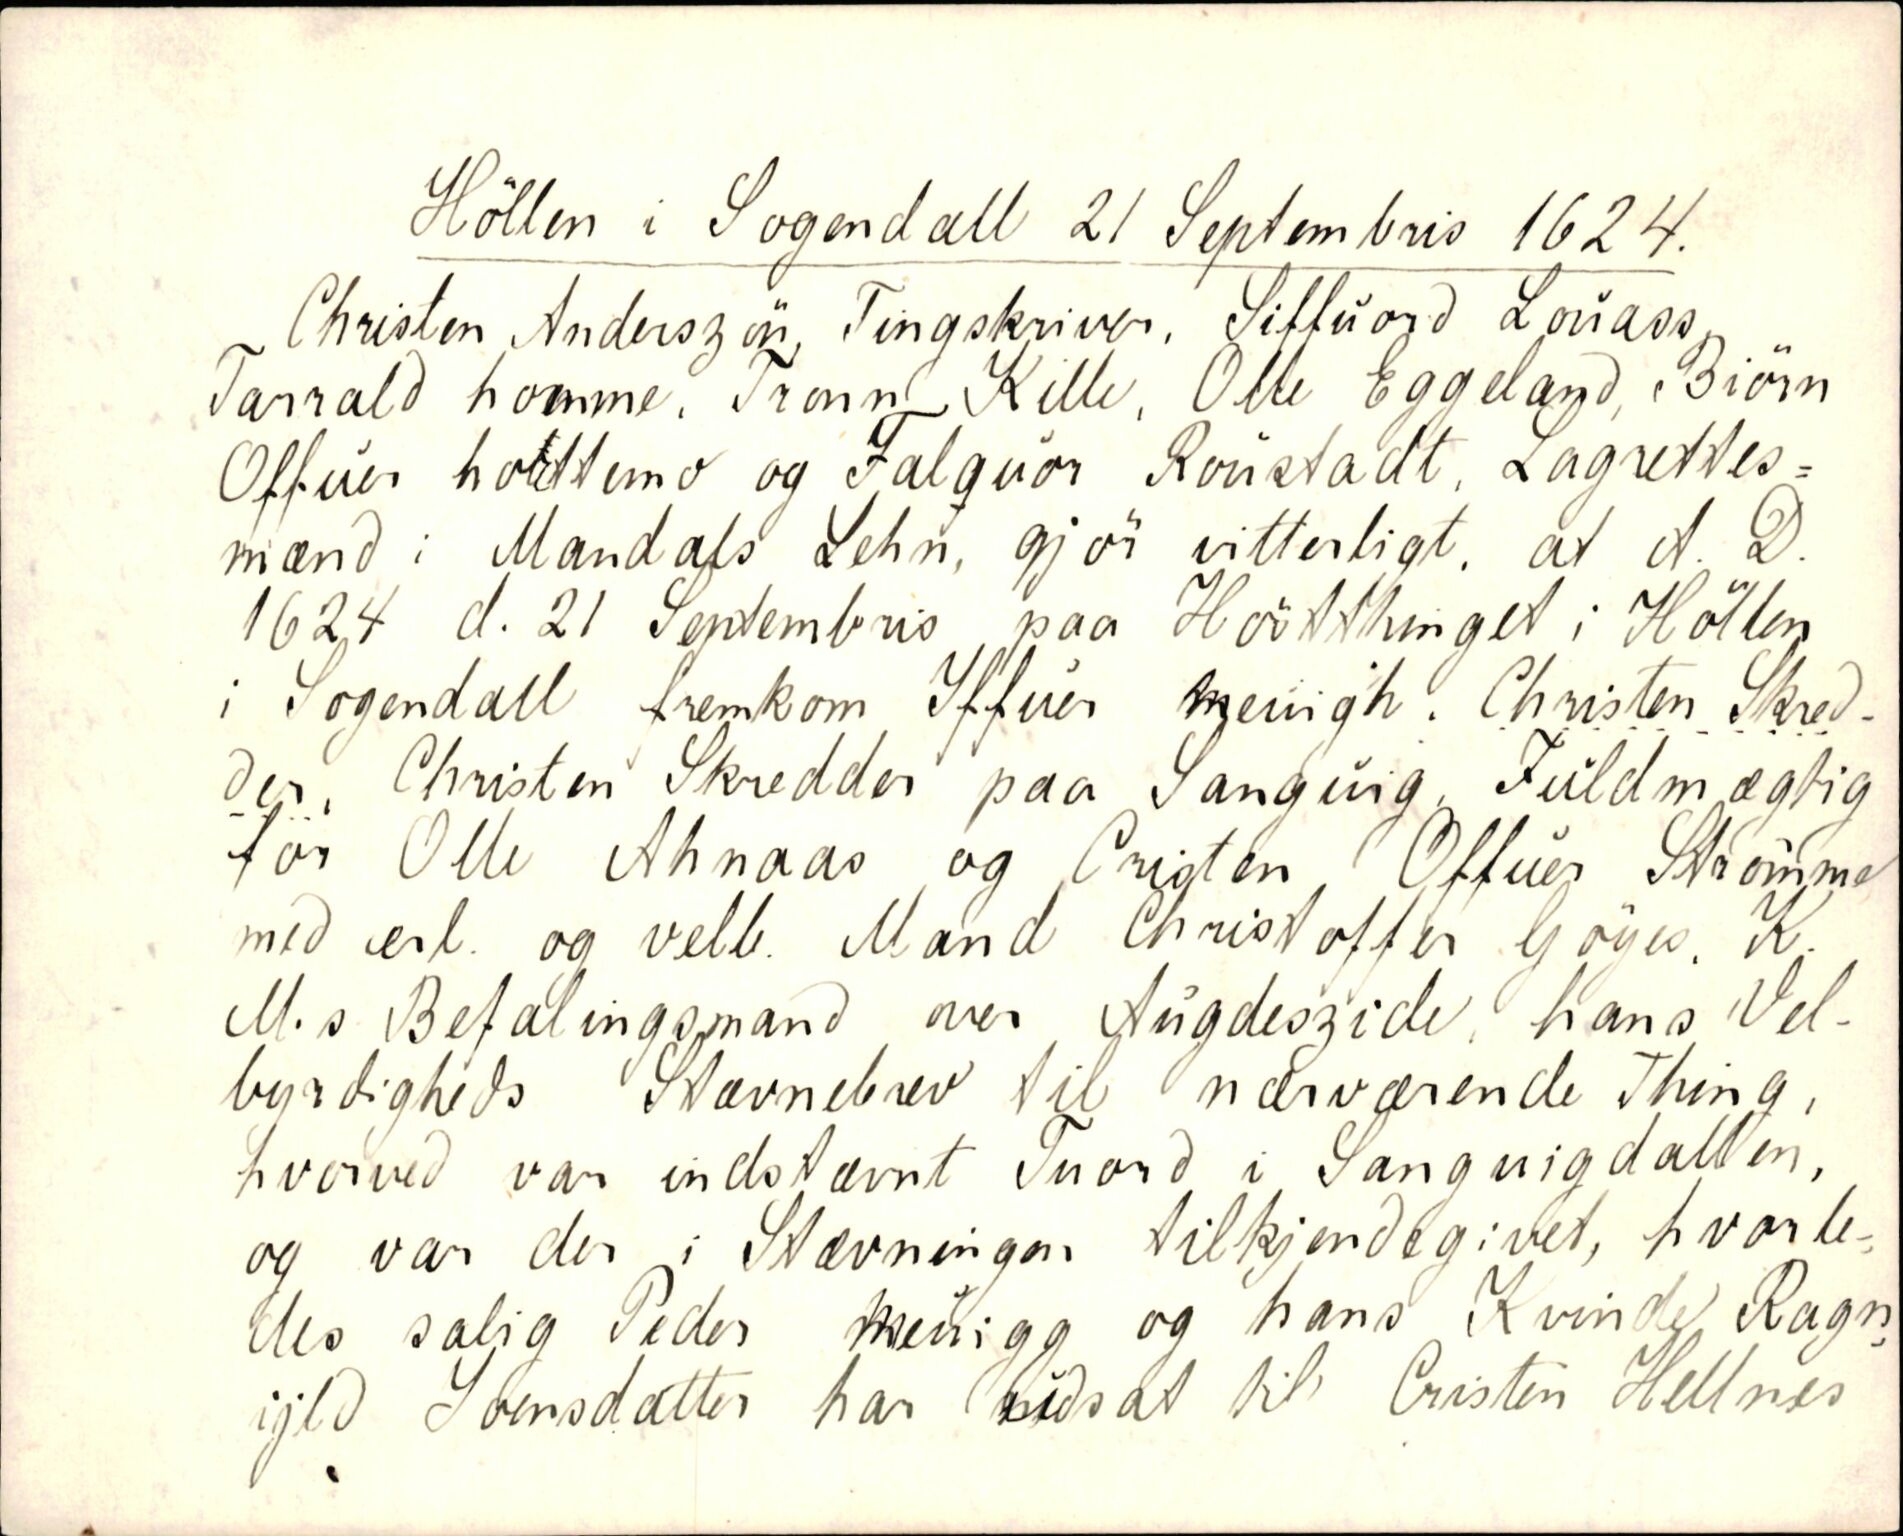 Höllen i Sogendall 21 Septembris 1624.
Christen Anderszön, Tingskriver, Siffuord Louass,
Tarrald homme, Tronn Kille, Olle Eggeland, Biörn
Offuer hottemo og Falquor Roustadt, Lagrettes=
mænd i Mandals Lehn, gjör vitterligt, at A. D.
1624 d. 21 Septembris paa Höstthinget i Höllen
i Sogendall fremkom Iffuer meuigh. Christen Skred-
der, Christen Skredder paa Sanguig, Fuldmægtig
for Olle Ahnaas og Cristen Offuer Strömme
med erl. og velb. Mand Christoffer Göyes, K.
M.s Befalingsmand over Augdeszide, hans Vel-
byrdigheds Stævnebrev til nærværende Thing,
hvorved var indstævnt Tuord i Sanguigdallen,
og var der i Stævningen tilkjendegivet, hvorle-
des salig Peder meuigg og hans Kvinde Ragn
ijld Soensdatter har udsat til Cristen Hellnes